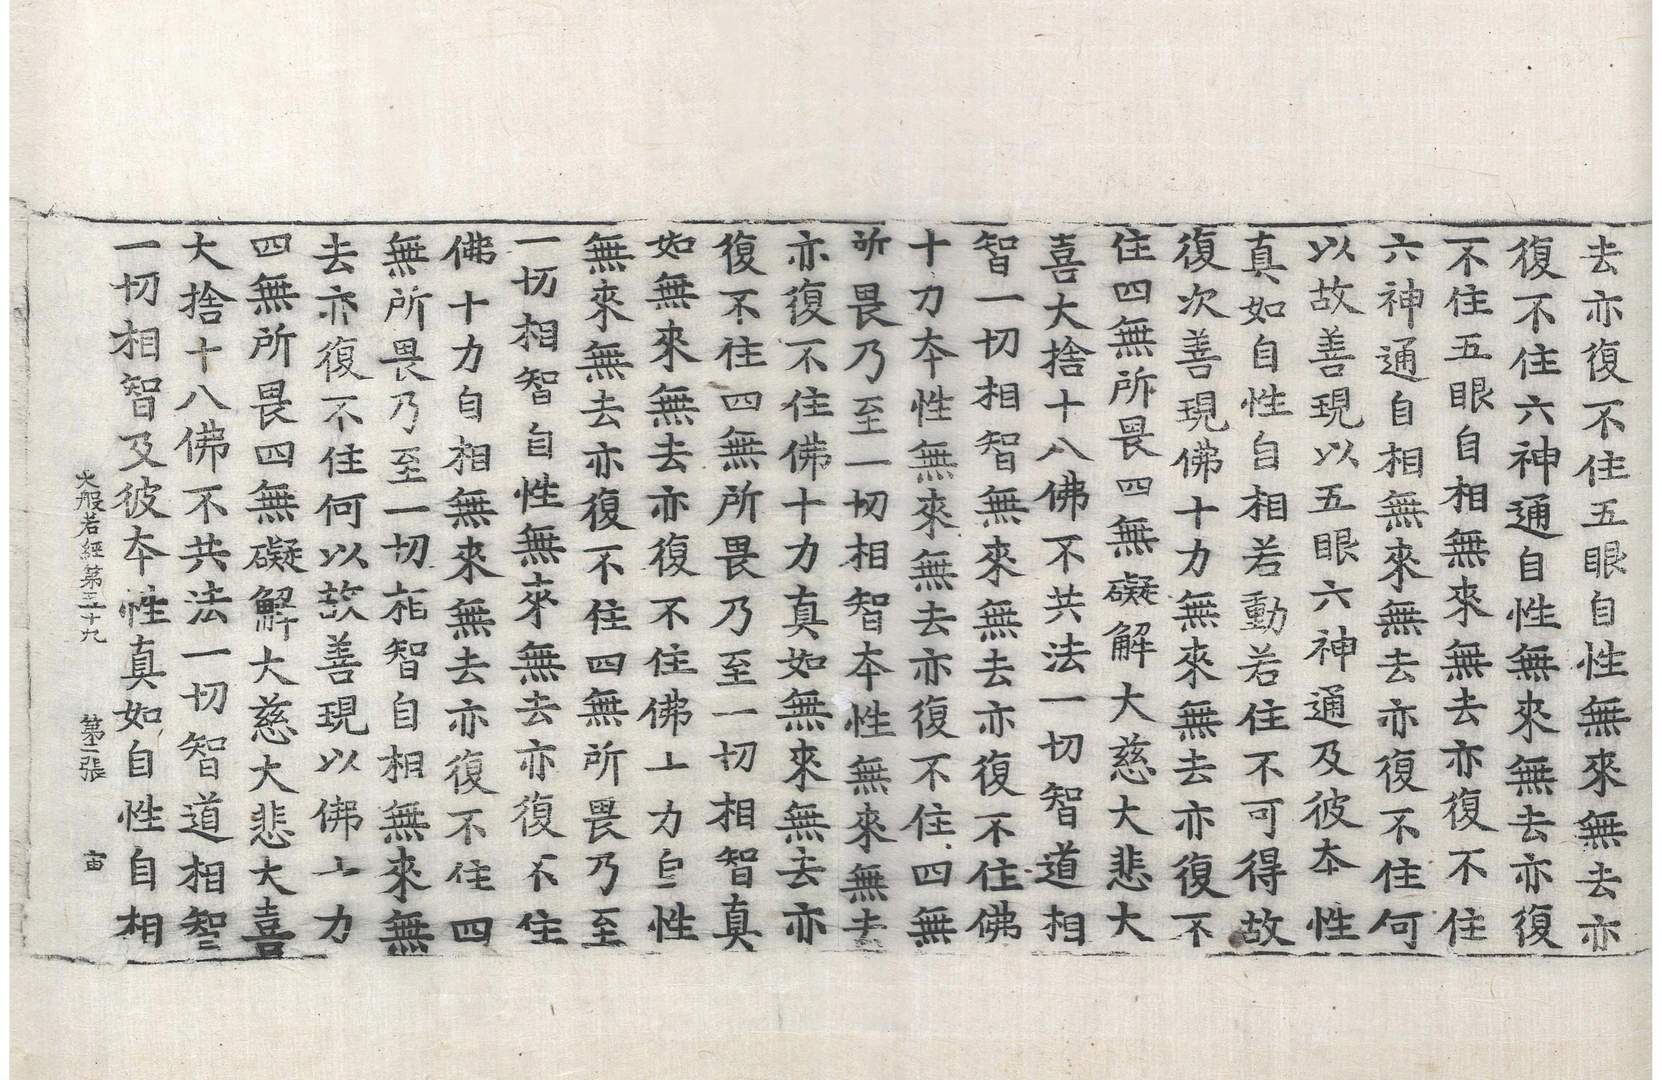 去亦復不住五眼自性無來無去亦
復不住六神通自性無來無去亦復
不住五眼自相無來無去亦復不住
六神通自相無來無去亦復不住何
以故善現以五眼六神通及彼本性
真如自性自相若動若住不可得故
復次善現佛十力無來無去亦復不
住四無所畏四無礙解大慈大悲大
喜大捨十八佛不共法一切智道相
智一切相智無來無去亦復不住佛
十力本性無來無去亦復不住四無
所畏乃至一切相智本性無來無去
亦復不住佛十力真如無來無去亦
復不住四無所畏乃至一切相智真
如無來無去亦復不住佛十力自性
無來無去亦復不住四無所畏乃至
一切相智自性無來無去亦復不住
佛十力自相無來無去亦復不住四
無所畏乃至一切相智自相無來無
去亦復不住何以故善現以佛十力
四無所畏四無礙解大慈大悲大喜
大捨十八佛不共法一切智道相智
一切相智及彼本性真如自性自相
大般若經第三十九　第二張　宙